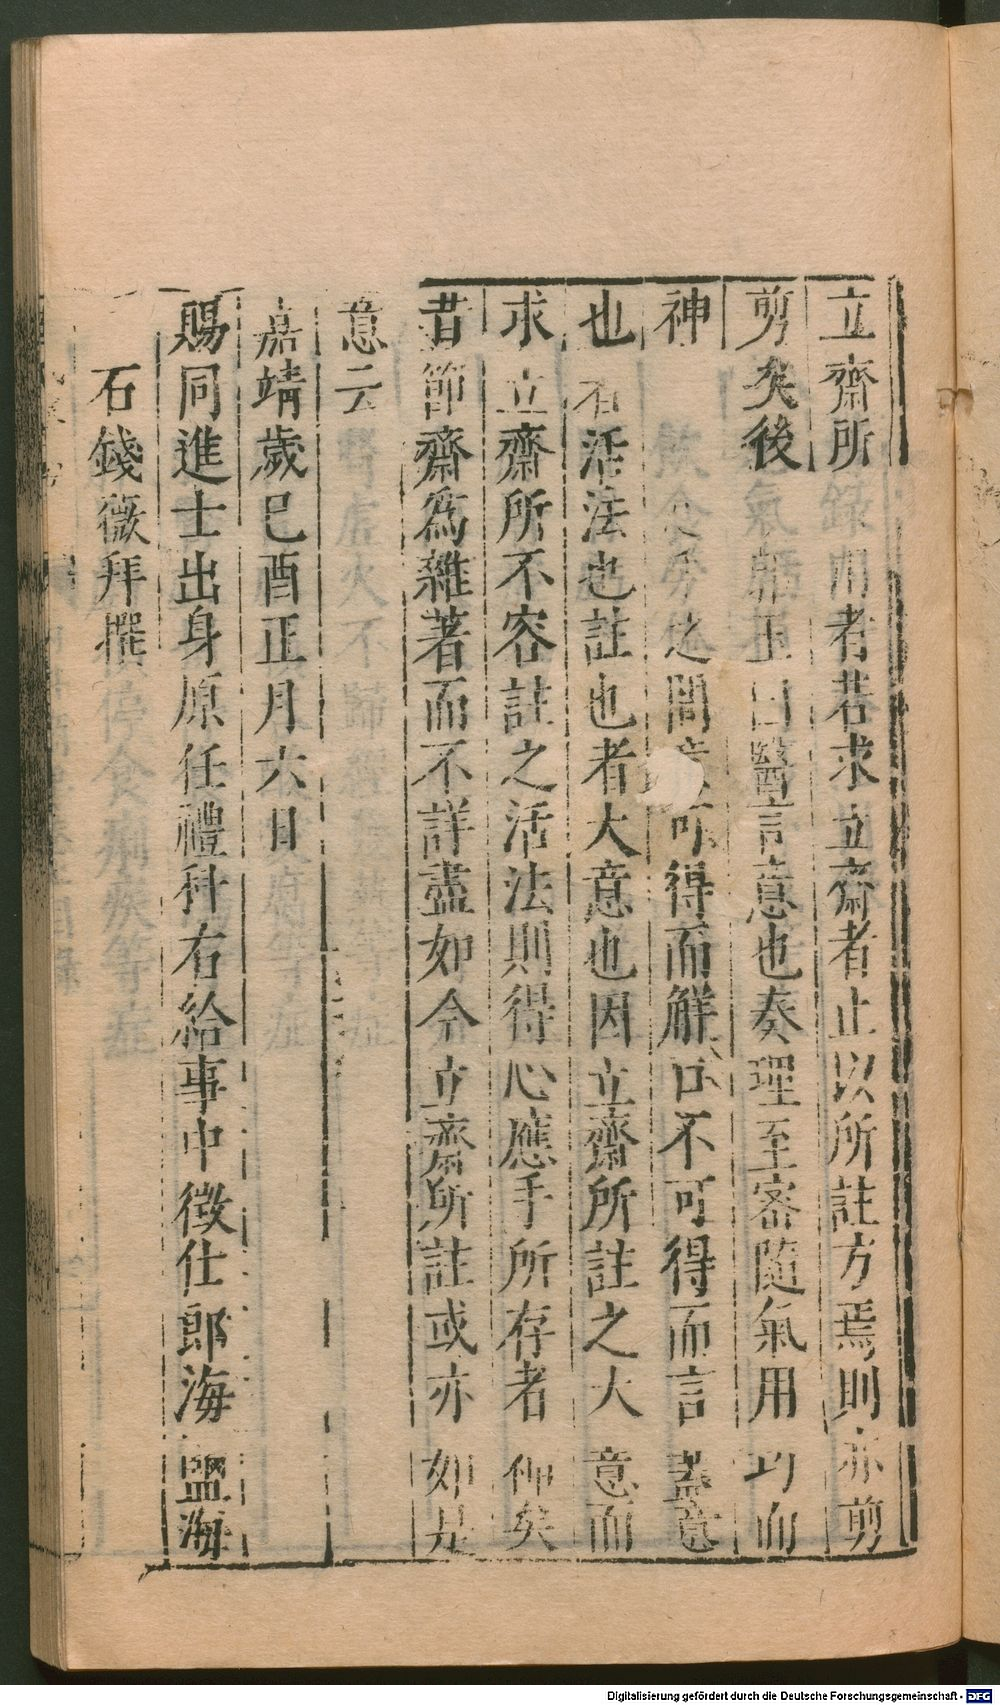 立齋所錄用者若求立齋者止以所註方焉則亦剪
剪矣後氣郭玉曰醫言意也奏理至密隨氣用巧而
神之間意可得而解口不可得而言蓋意
也者活法也註也者大意也因立齋所註之大意而
求立齋所不容註之活法則得心應手所存者神矣
昔節齋為雜著而不詳盡如今立齋所註或亦如是
意云
嘉靖歲巳酉正月六日
賜同進士出身原任禮科右給事中徵仕郎海鹽海
石錢薇拜撰
Digitalisierung gefördert durch die Deutsche Forschungsgemeinschaft - DFG